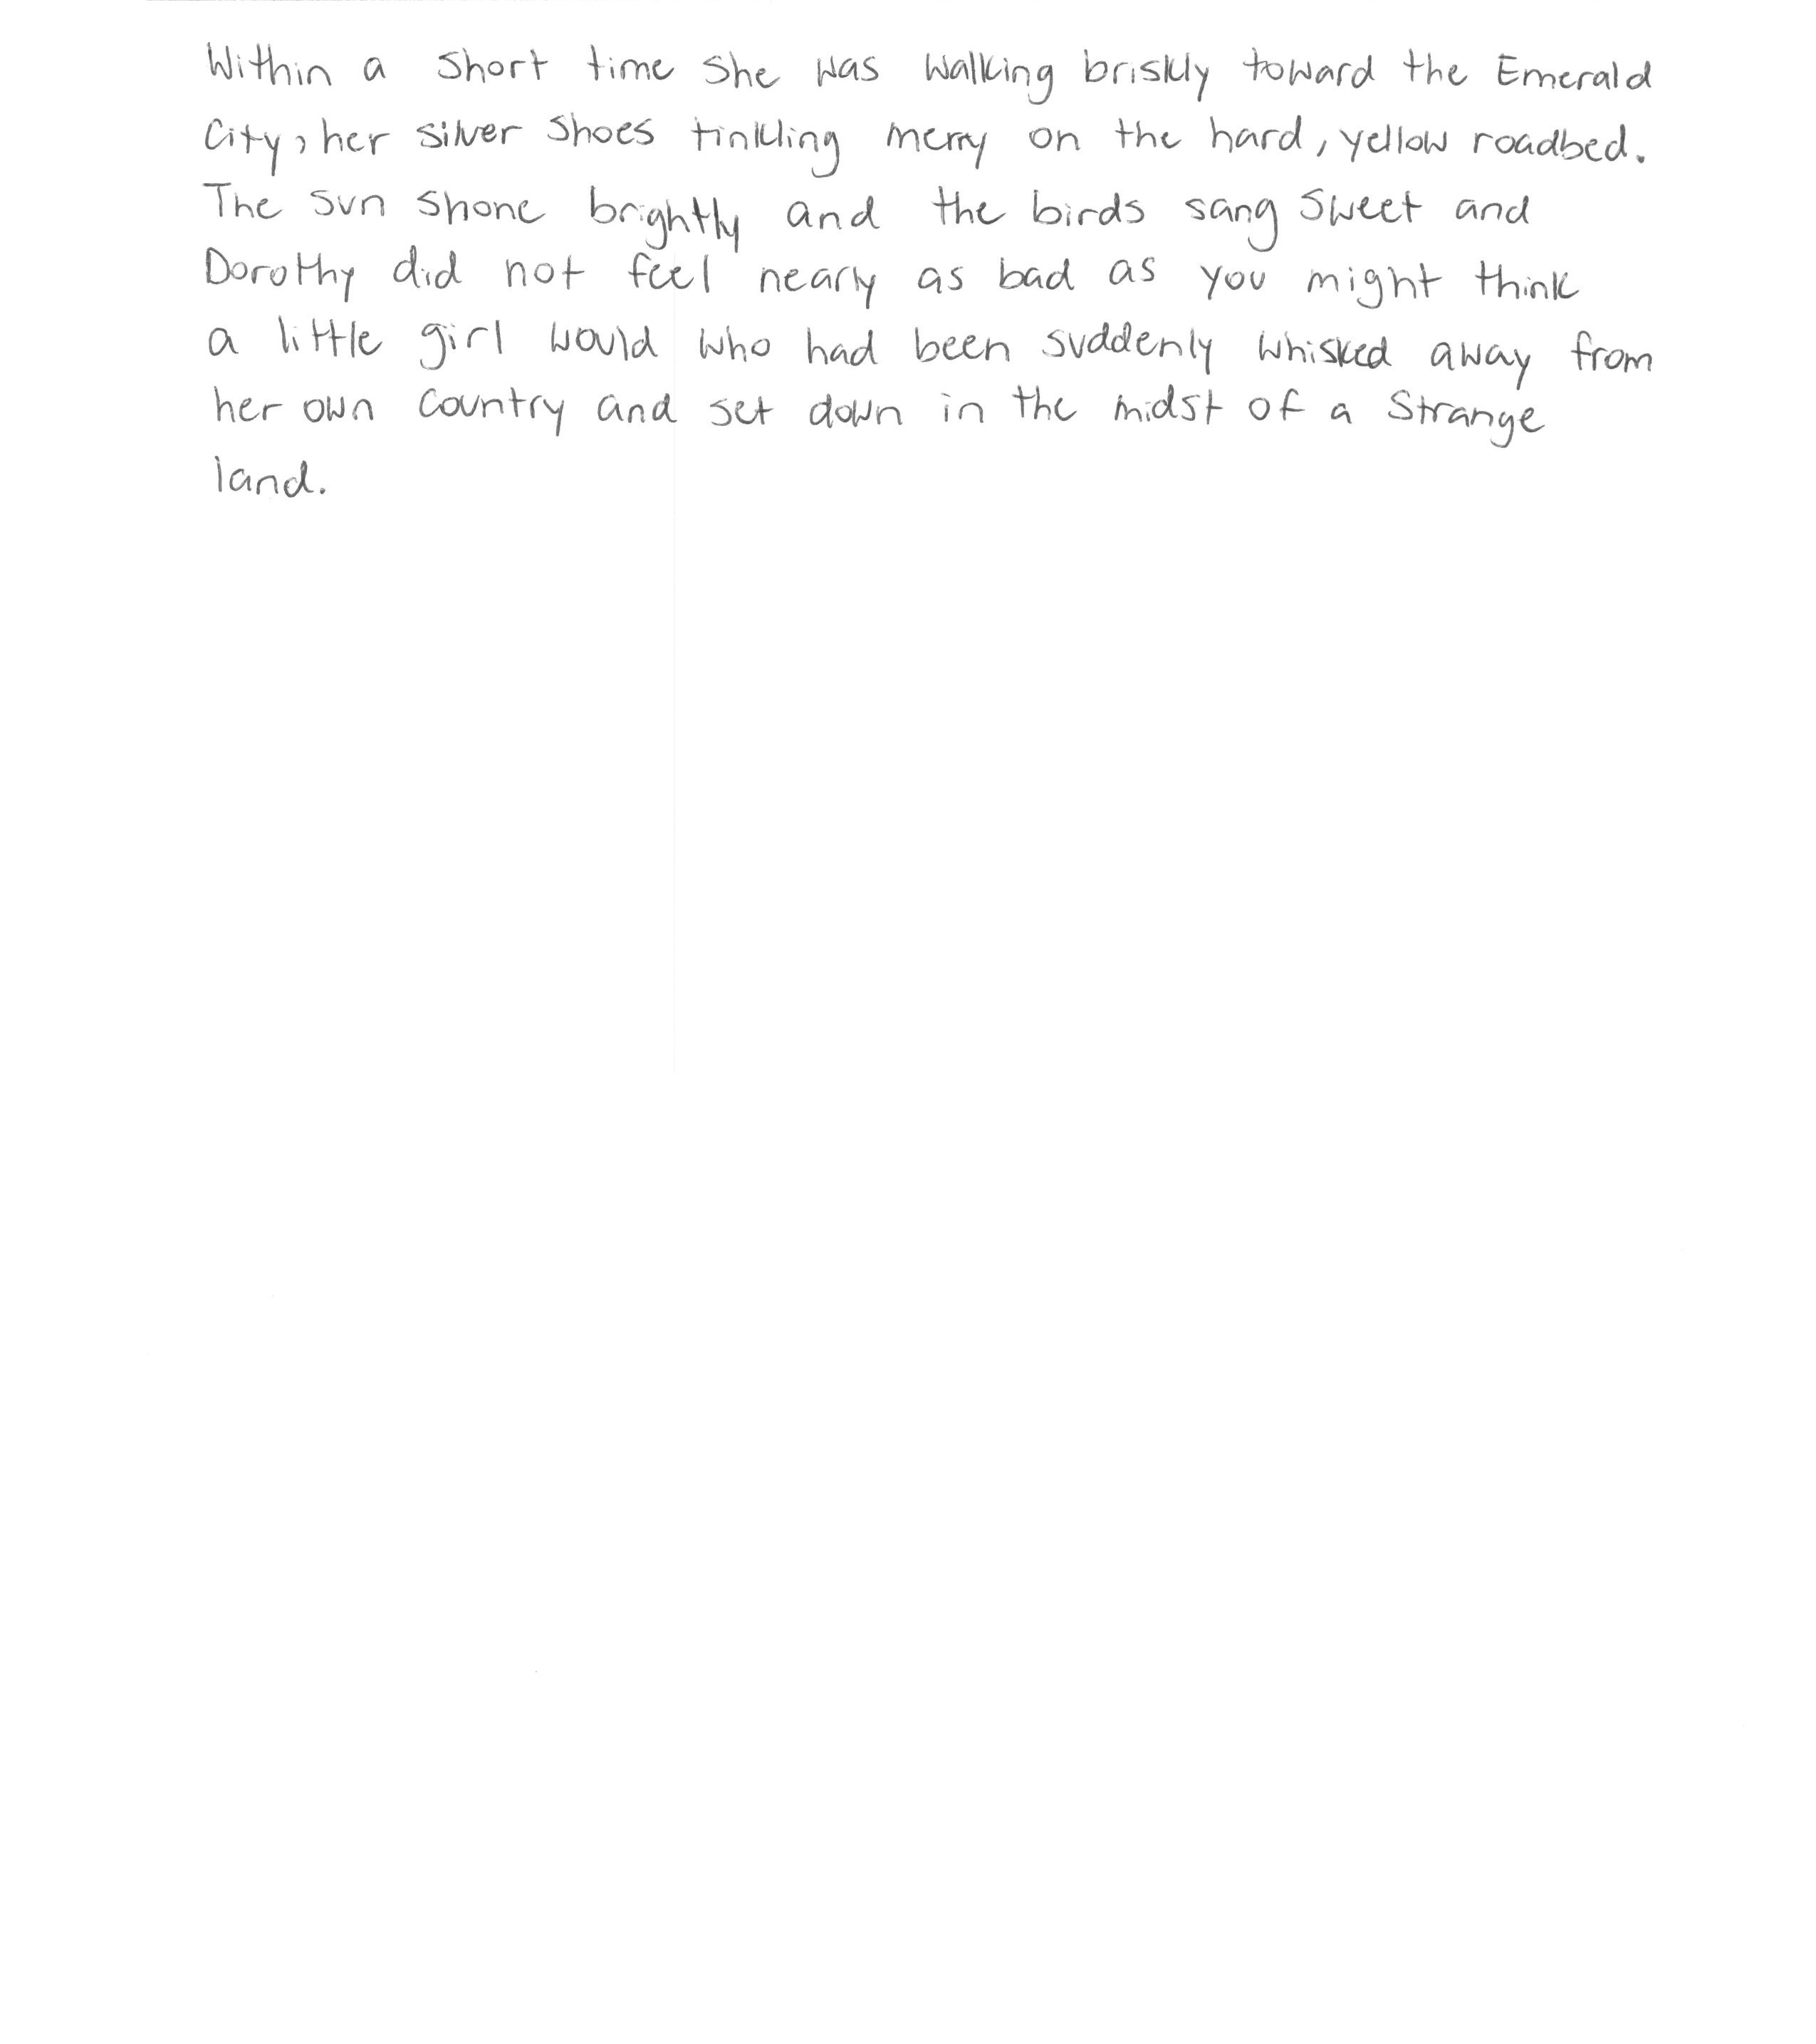 Within a short time she was walking briskly toward the Emerald
City, her silver shoes tinkling merry on the hard, yellow roadbed.
The sun shone brightly and the birds sang sweet and
Dorothy did not feel nearly as bad as you might think
a little girl would who had been suddenly whisked away from
her own country and set down in the midst of a strange
land.